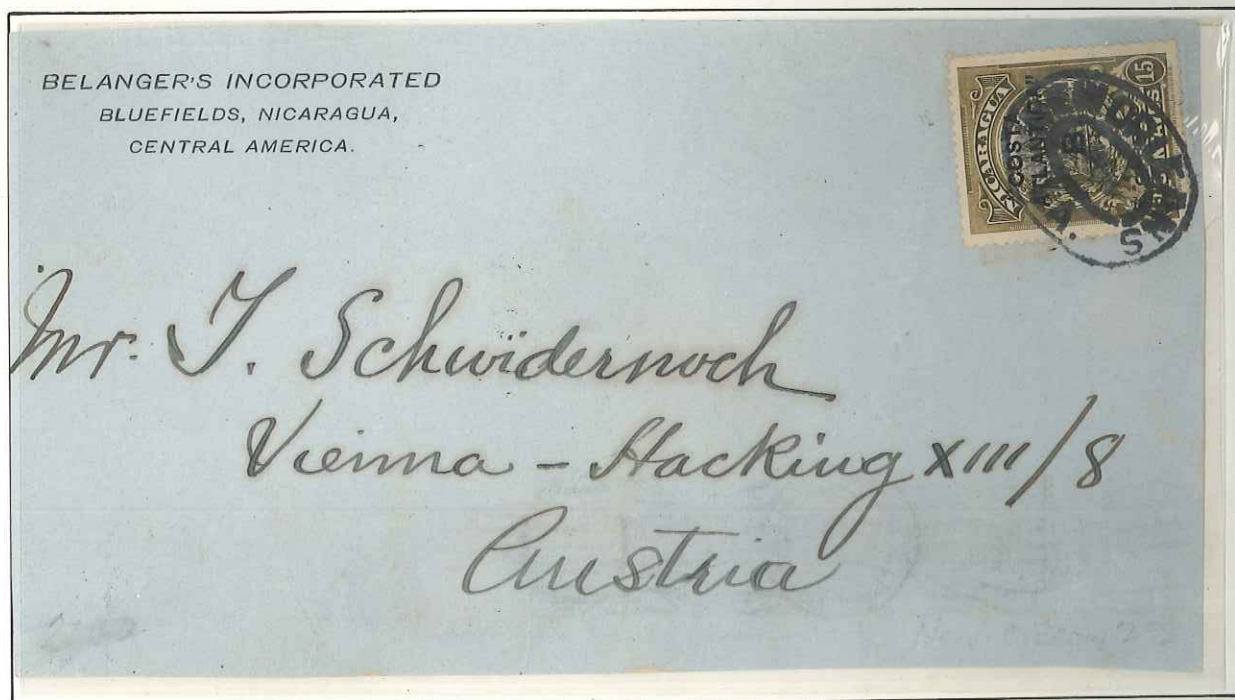 BELANGER'S INCORPORATED
BLUEFIELDS, NICARAGUA,
CENTRAL AMERICA.
NICARAGUA
15
B
Mr. J. Schwidernoch
Vienna - Hacking XIII/8
Austria